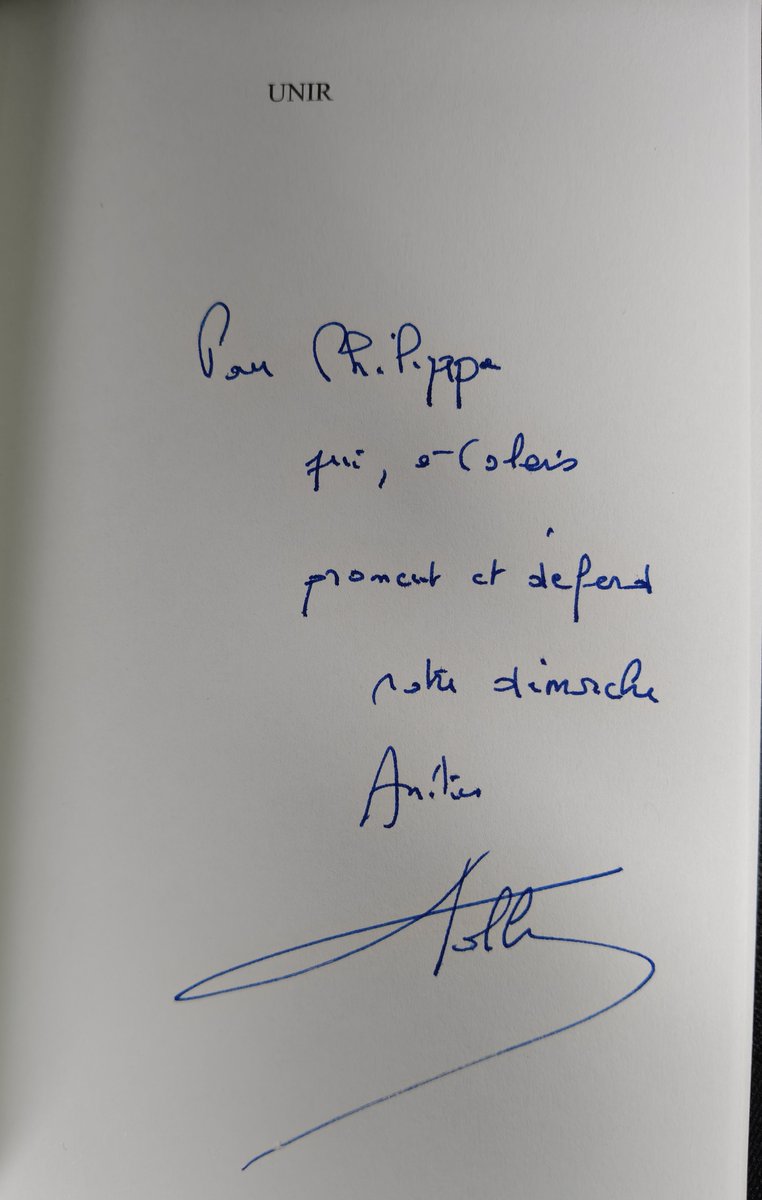 UNIR
Pour Philippe
qui, à Calais
promeut et défend
notre démarche
Amitiés